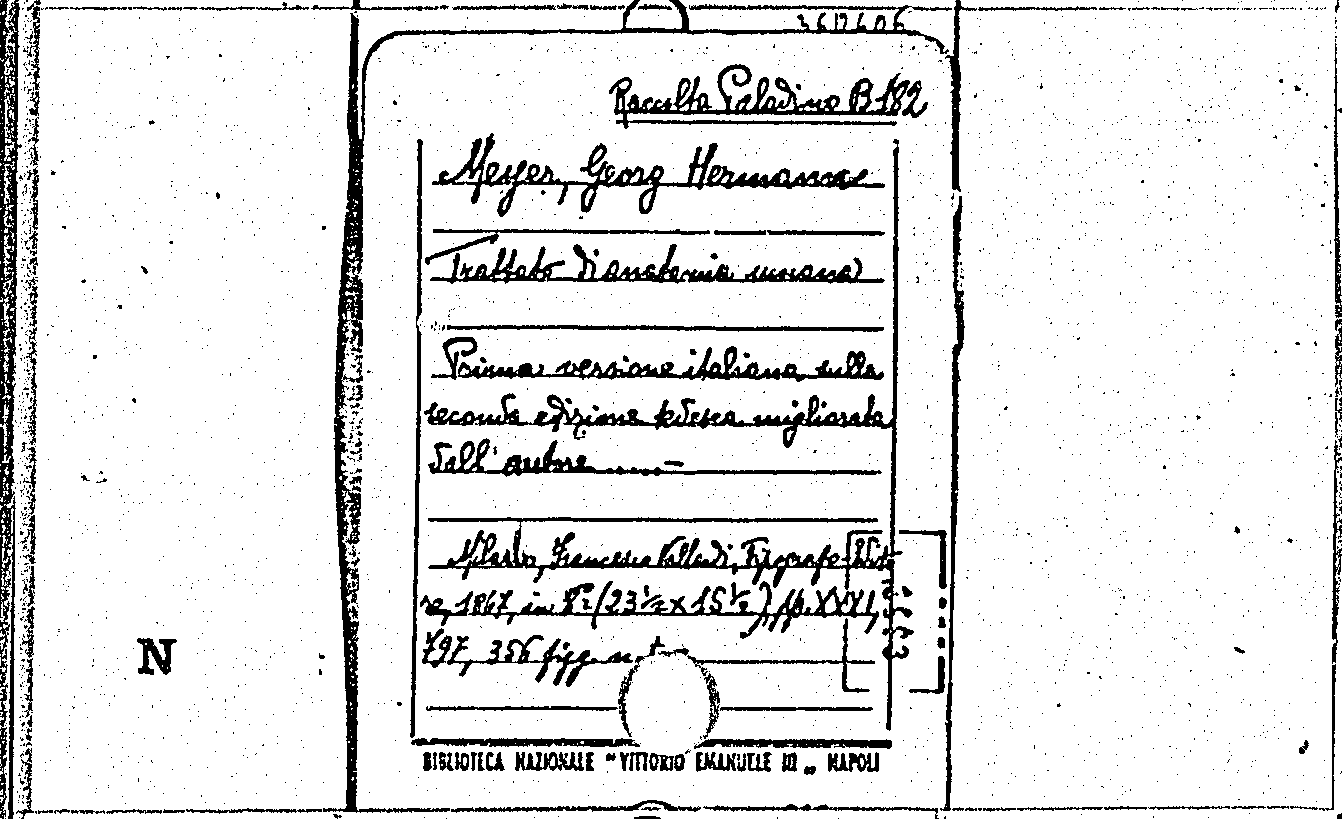 3612606
Raccolta Paladino B 182
Meyer, Georg Hermann
Trattato di anatomia umana
Prima versione italiana sulla
seconda edizione tedesca migliorata
dall' autore.....-
Milano, Francesco Vallardi, Tipografo-Edito
re, 1867, in 8° (23 ½ x 15 ½) pp. XXXI,
797, 356 figg. n. t.
N
BIBLIOTECA NAZIONALE "VITTORIO EMANUELE III„ NAPOLI